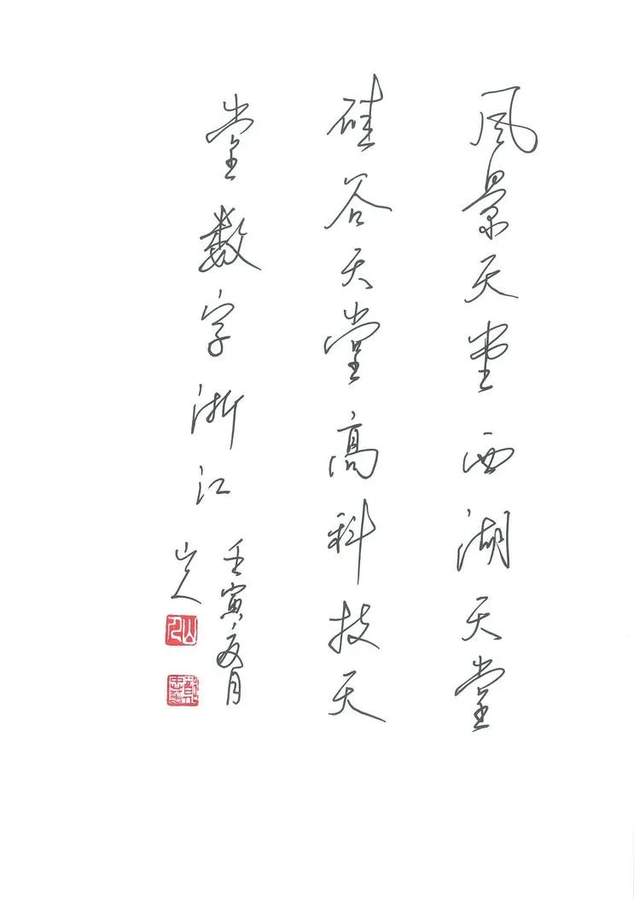 風景天堂西湖天堂
硅谷天堂高科技天
堂數字浙江
壬寅夏月
山人
山人